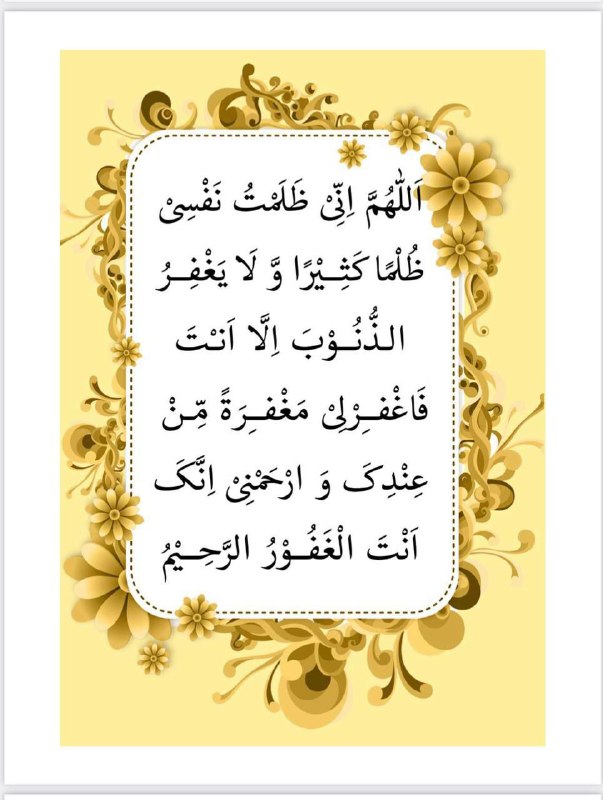 اَللّٰهُمَّ اِنِّیْ ظَلَمْتُ نَفْسِیْ
ظُلْمًا کَثِــیْرًا وَّ لَا یَغْفِــرُ
الـذُّنُــوْبَ اِلَّا اَنْـتَ
فَاغْفِــرْلِیْ مَغْفِــرَةً مِّـنْ
عِنْدِکَ وَ ارْحَمْنِیْ اِنَّکَ
اَنْتَ الْغَفُــوْرُ الرَّحِــیْمُ